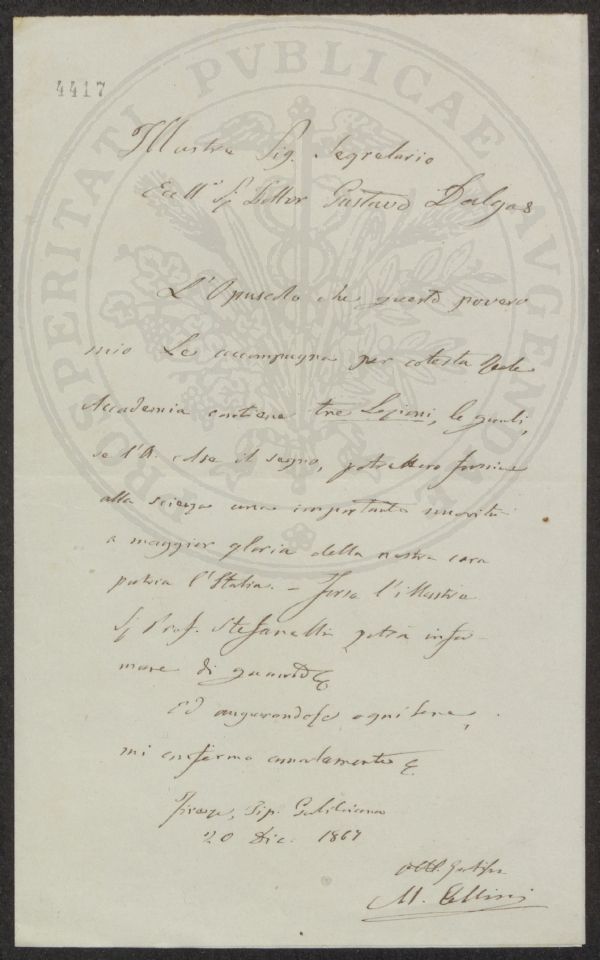 4417
PROSPERITATI PVBLICAE AVGENDAE
Illustre Sig. Segretario
Ecc. Sig. Dottor Gustavo Dalgas
L'Opuscolo che questo povero
mio Le accompagna per cotesta Reale
Accademia contiene tre Lezioni, le quali,
se l'A. colse il segno, potrebbero fornire
alla scienza una importante novità
a maggior gloria della nostra cara
patria l'Italia. – Forse l'illustre
Sig. Prof. Stefanelli potrà infor-
mare di quanto
Ed augurandole ogni bene,
mi confermo
Firenze, Tip. Galileiana
20 Dic. 1867
M. Cellini